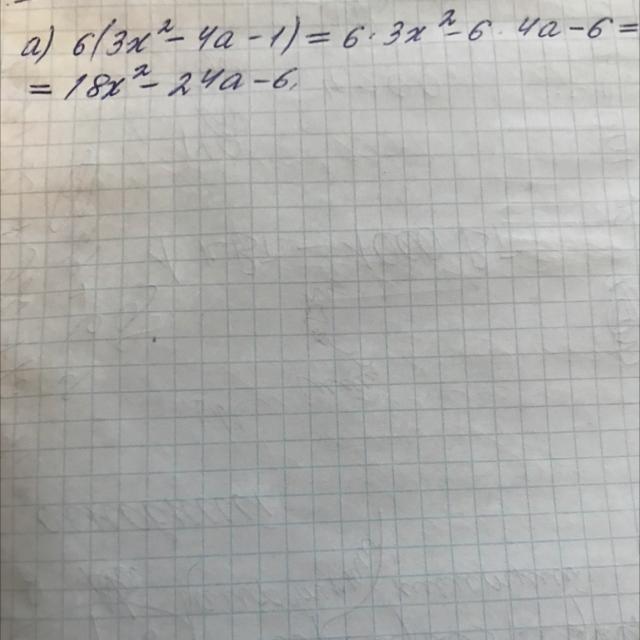 а) 6(3x² - 4a - 1) = 6 · 3x² - 6 · 4a - 6 =
= 18x² - 24a - 6.